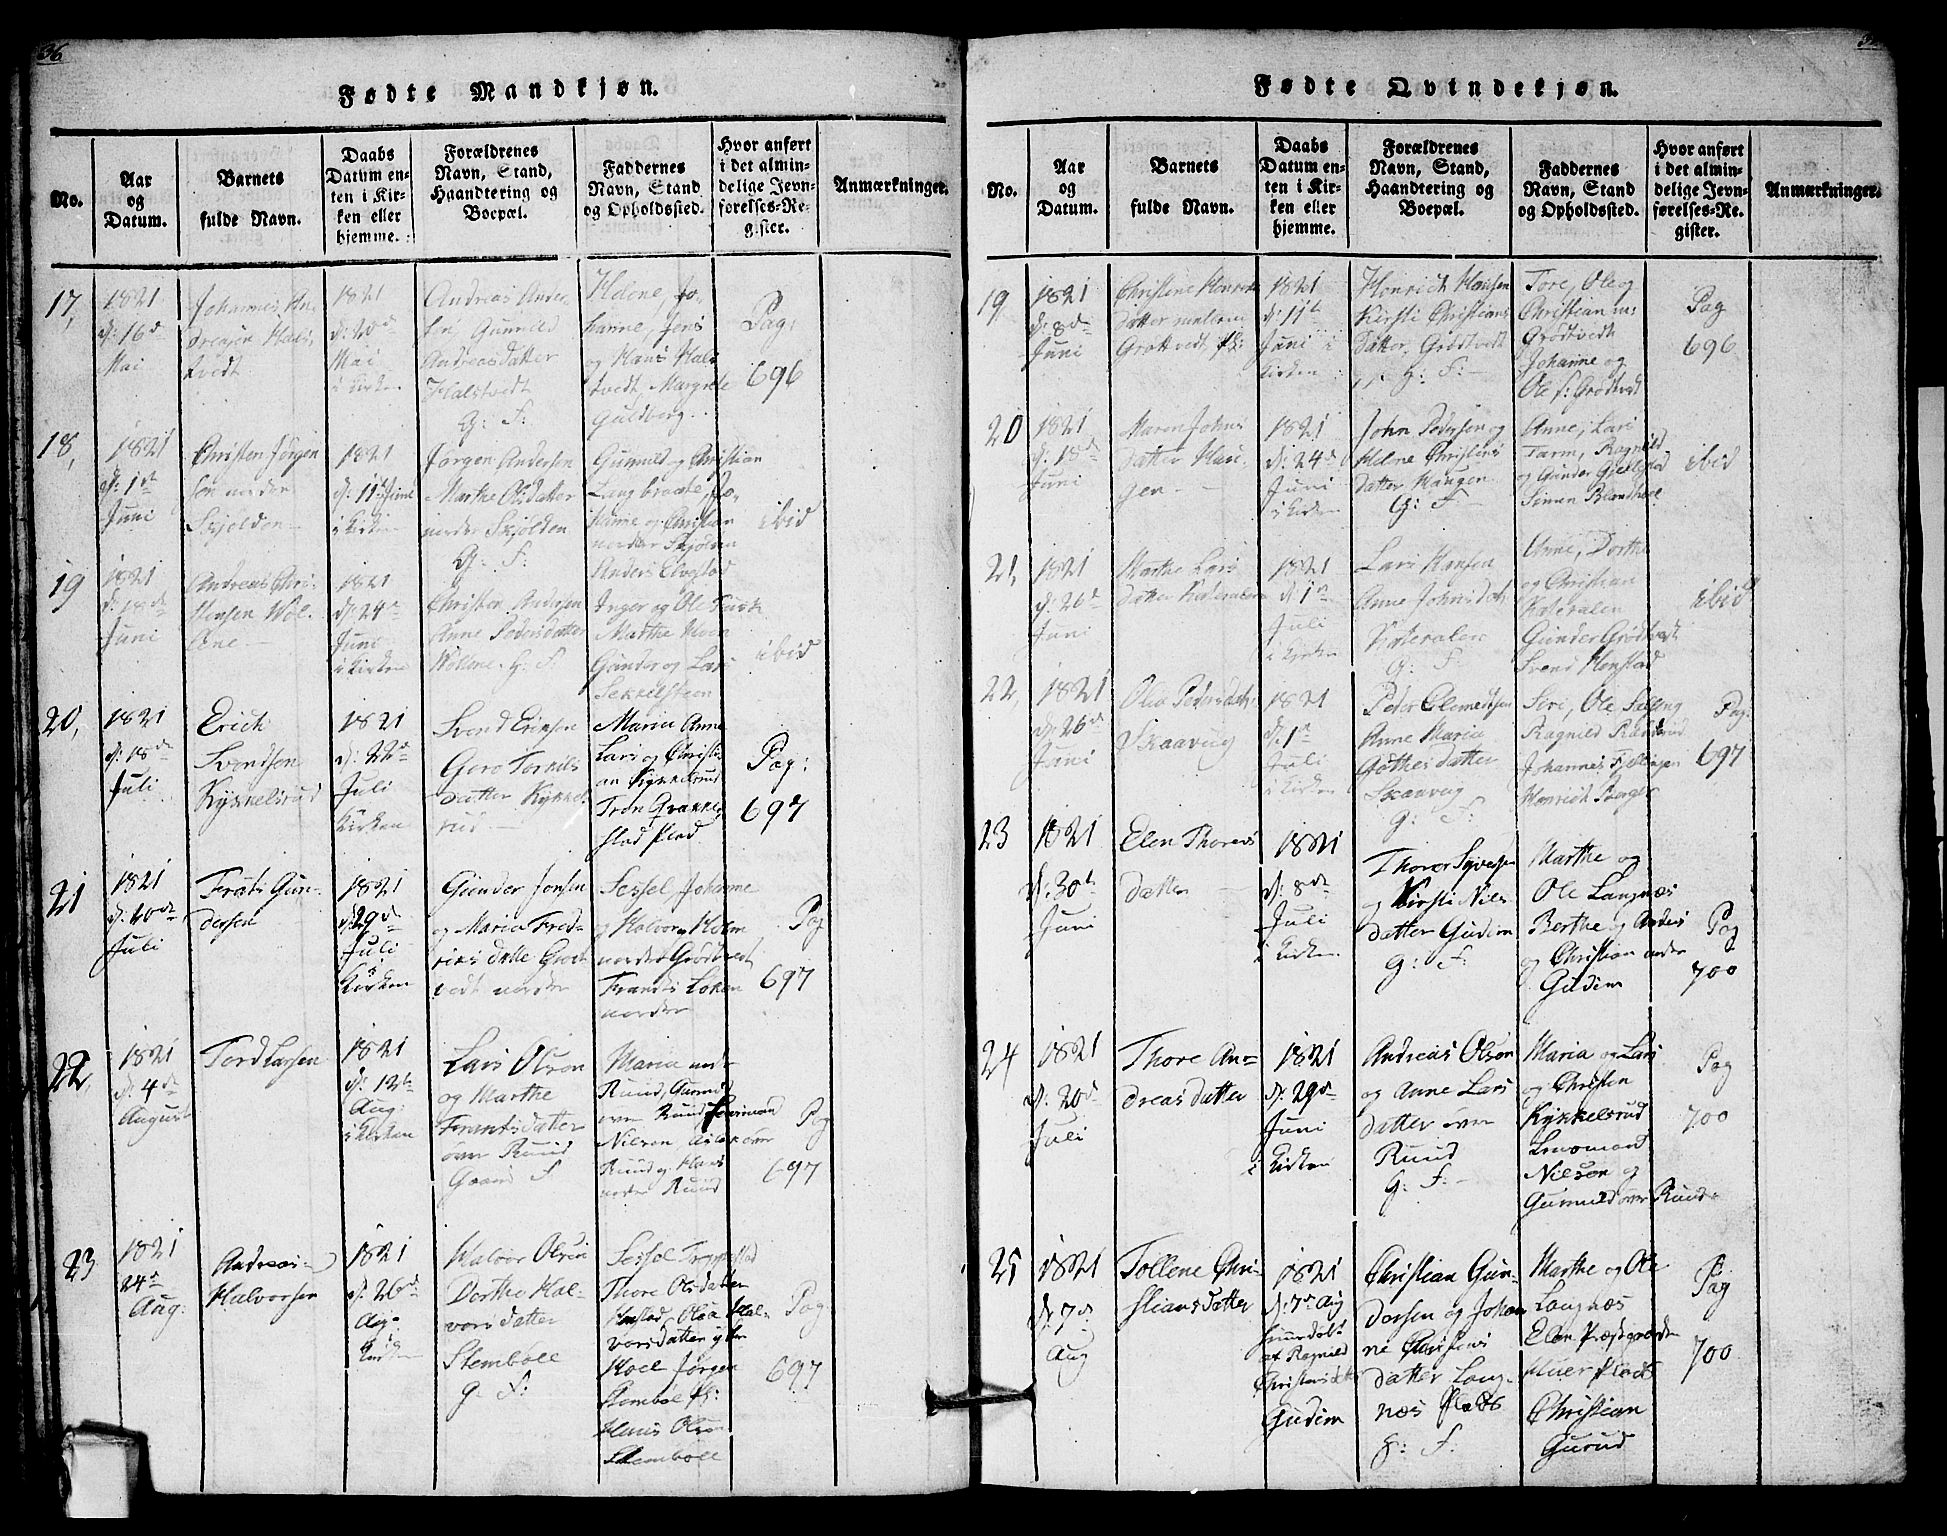 36
Fødte Mandkjøn.
No.
Aar
og
Datum.
Barnets
fulde Navn.
Daabs
Datum en-
ten i Kir-
ken eller
hjemme.
Forældrenes
Navn, Stand,
Haandtering og
Boepæl.
Faddernes
Navn, Stand
og Opholdssted.
Hvor anført
i det almin-
delige Jevn-
førelses-Re-
gister.
Anmærkninger.
17,
1821
d: 16de
Mai
Johannes An-
dreasen Hals-
tvedt
1821
d: 20de
Mai
i Kirken
Andreas Ander-
sen Gunnild
Andreasdatter
Halstvedt
G: F:
Helene, Jo-
hanne, Jens
og Hans Hals
tvedt, Margrete
Guldberg
Pag:
696
18,
1821
d: 1de
Juni
Christen Jørgen
sen nordre
Skjolden
1821
d: 11te Juni
i Kirken
Jørgen Andersen
Marthe Olsdatter
nordre Skjolden
G: F:
Gunnild og Christian
Langbraate, Jo-
hanne og Christian
nordre Skjolden
Anders Elvestad
ibid
19
1821
d: 18de
Juni
Andreas Chri-
stensen Wol-
lene
1821
d: 24de
Juni
i Kirken
Christen Andersen
Anne Pedersdatter
Wollene G: F:
Inger og Ole Tusk
Marthe Moen
Gunder og Lars
Sekkelsteen
ibid
20,
1821
d: 18de
Juli
Erich
Svendsen
Kykkelsrud
1821
d: 22de
Juli
Kirken
Svend Erichsen
Goro Torkils
datter Kykkels
rud
Maria Anne
Lars og Christi-
an Kykkelsrud
Tron Grakke-
stad Plad
Pag:
697
21
1821
d: 20de
Juli
Frats Gun-
dersen
1821
d: 29de
Juli
Kirken
Gunder Jensen
og Maria Fred-
riks datte Grot
vedt nordre
Sessel, Johanne
og Halvor Holm
nordre Grødtvedt
Frants Løken
nordre
Pag
697
22,
1821
d: 4de
August
Tord Larsen
1821
d: 12te
Aug:
i Kirken
Lars Olsen
og Marthe
Frantsdatter
over Ruud
Gaard F
Maria ned-
Ruud, Gunnild
over Ruud
Nilsen over
Ruud og Hans
nedre Ruud
Pag
697
23
1821
24de
Aug:
Andreas
Halvorsen
1821
d: 26de
Aug:
Kirken
Halvor Olsen
Dorthe Hal-
vors datter
Stemboll
G: F:
Sessel Tryggestad
Thore Olsdatter
Henstad, Olea Hal-
vorsdatter yttre
Hoel Jørgen
Stembol pl:
Hans Olsen
Stemboll
Pag
697
Fødte Qvindekjøn.
No.
Aar
og
Datum.
Barnets
fulde Navn.
Daabs
Datum en-
ten i Kir-
ken eller
hjemme.
Forældrenes
Navn, Stand,
Haandtering og
Boepæl.
Faddernes
Navn, Stand
og Opholdssted.
Hvor anført
i det almin-
delige Jevn-
førelses-Re-
gister.
Anmærkninger.
19
1821
d: 8de
Juni
Christine Henriks
datter mellem
Grottvedt
1821
d: 11te
Juni i
Kirken
Henrich Hansen
Kirsti Christians
datter, Grødtvedt
G: F:
Tore, Ole og
Christian m:
Grødtvedt
Johanne og
Ole s: Grødtvedt
Pag
696
20
1821
d: 18de
Juni
Maren Johns
datter Hau-
gen
1821
d: 24de
Juni
i Kirken
John Pedersen og
Helene Christens
datter Haugen
G: F:
Anne, Lars
Tarm, Ragnild
og Gunder Gjellestad
Simen Blandhoel
ibid
21,
1821
d: 26de
Juni
Marthe Lars
datter Kateralen
1821
d: 1de
Juli
i Kirken
Lars Hansen
Anne Johnsdat:
Kateralen
G: F:
Anne, Dorthe
og Christian
Kateralen
Gunder Grødtvedt
Svend Henstad
ibid
22,
1821
d: 26de
Juni
Olia Pedersdat:
Skaavug
1821
d: 1de
Juli
i Kirken
Peder Clemedtsen
Anne Maria
Gothes datter
Skaavug
G: F:
Siri, Ole
Ragnild
Johannes
Henrich Berger
Pag:
697
23
1821
d: 30te
Juni
Elen Thorers
datter
1821
d: 8de
Juli
i Kirken
Thorer Syversen
og Kirsti Nils
datter Gudim
G: F:
Marthe og
Ole Langnæs
Berthe og Anders
og Christian nedre
Gudim
Pag
700
24
1821
d: 20de
Juli
Thore An-
dreasdatter
1821
d: 29de
Juni
i Kirken
Andreas Olsen
og Anne Lars
datter over
Ruud
G: F:
Maria og Lars
og Christen
Kykkelsrud
Nilsen og
Gunnild over Ruud
Pag
700
25
1821
d: 7de
Aug
Tollene Chri-
stians datter
1821
d: 7de Aug
hiemdøbt
af Ragnild
Christensdatt
Gudim
Christian Gun-
dersen og Johan
ne Christens
datter Lang-
næs Plads
G: F:
Marthe og Ole
Langnæs
Elen Præstgaarden
Huer Plads
Christian
Gurud
Pag
700